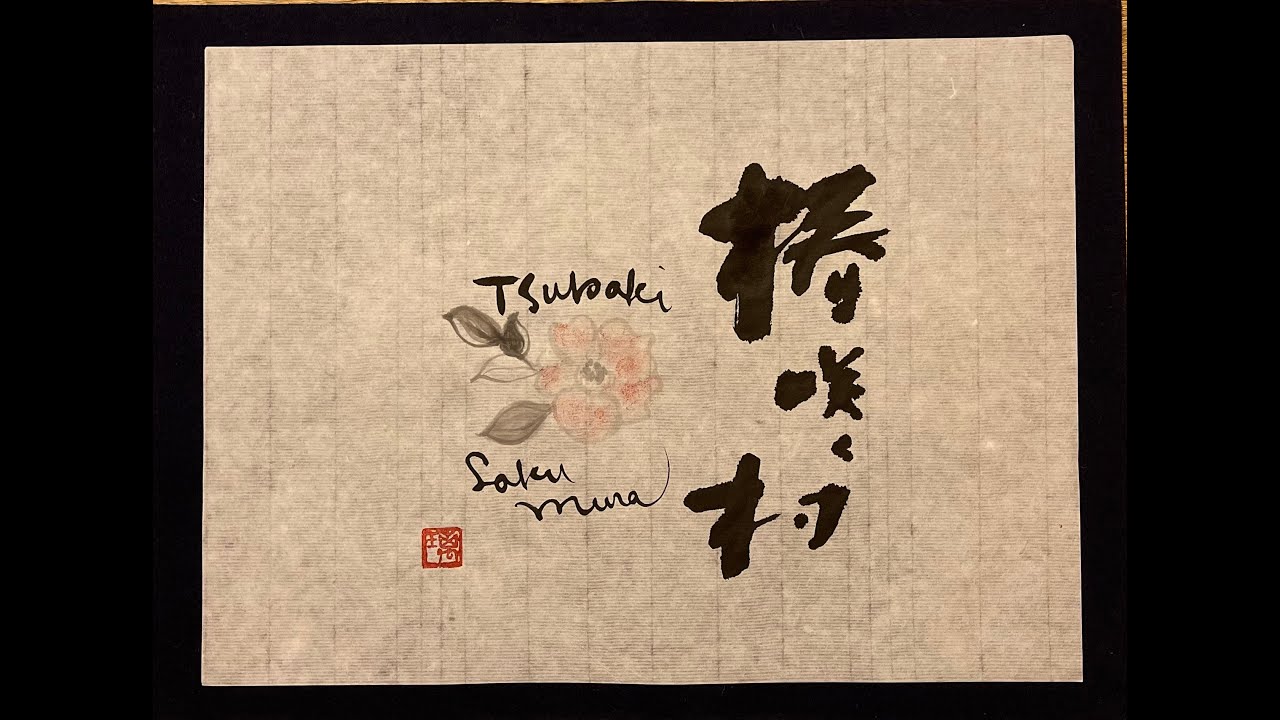 椿咲く村
Tsubaki
Saku
mura